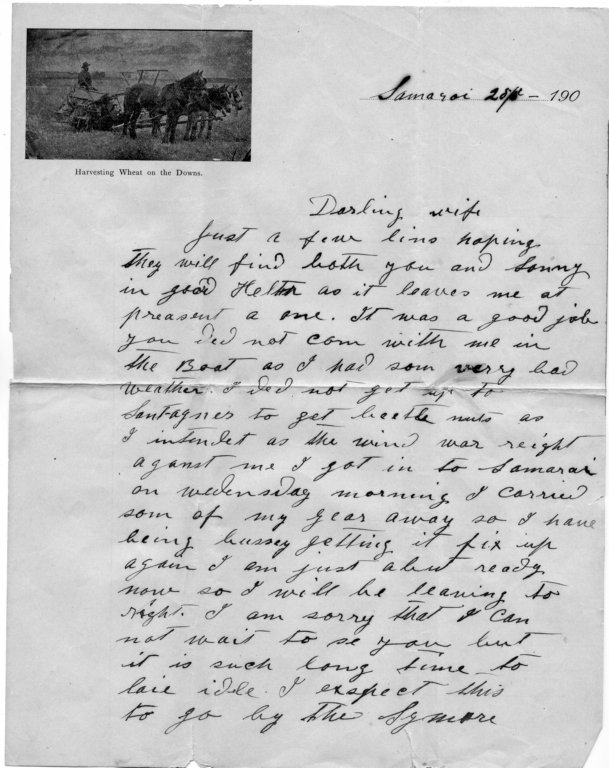 Harvesting Wheat on the Downs.
Samarai 28th – 190
Darling wife
Just a few lins hoping
they will find both you and Sonny
in good Helth as it leaves me at
preasent a one. It was a good job
you did not com with me in
the Boat as I had som very bad
weather. I ded not get up to
to get beetle nuts as
I intendet as the wind war reight
aganst me I got in to Samarai
on wedensday morning I carried
som of my gear away so I have
being bussey getting it fix up
again I am just abut ready
now so I will be leaving to
night. I am sorry that I can
not wait to se you but
it is such long time to
laie idle. I expect this
to go by the Symore